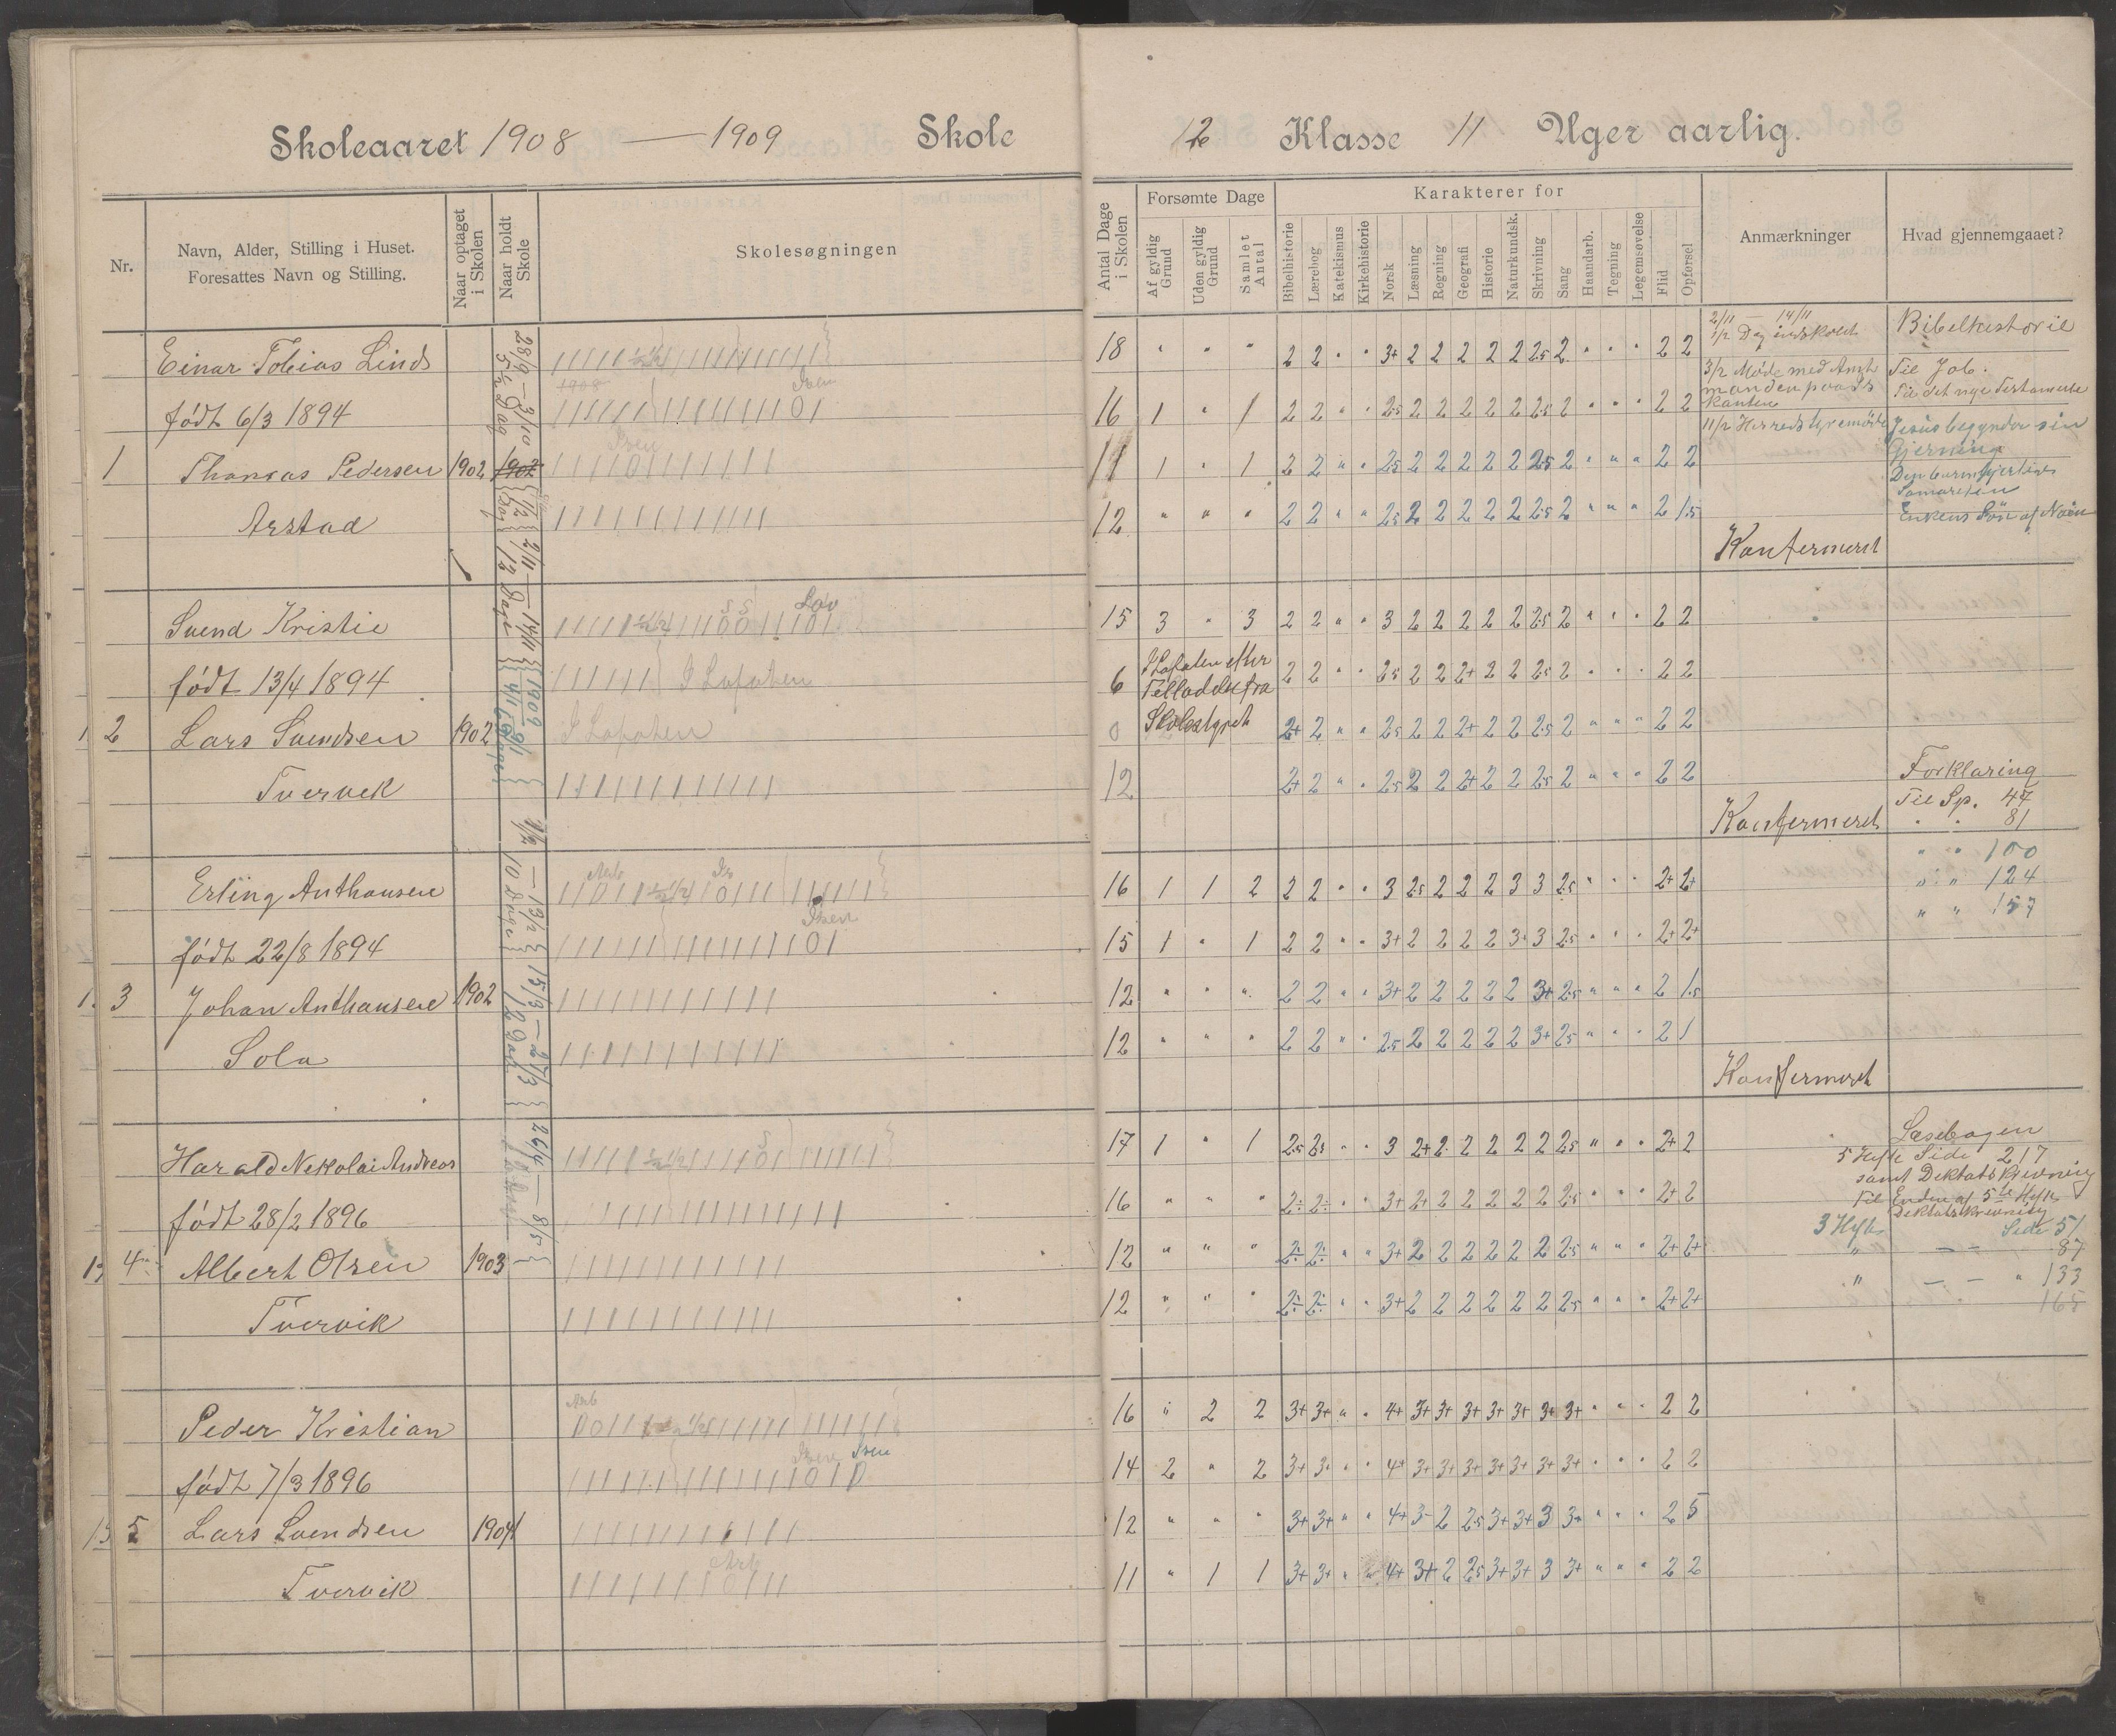 Skoleaaret 1908 — 1909 Skole
2 Klasse 11 Uger aarlig.
Nr.
Navn, Alder, Stilling i Huset.
Foresattes Navn og Stilling.
Naar optaget i Skolen
Naar holdt Skole
Skolesøgningen
Antal Dage i Skolen
Forsømte Dage
Af gyldig Grund
Uden gyldig Grund
Samlet Antal
Karakterer for
Bibelhistorie
Lærebog
Katekismus
Kirkehistorie
Norsk
Læsning
Regning
Geografi
Historie
Naturkundsk.
Skrivning
Sang
Haandarb.
Tegning
Legemsøvelse
Flid
Opførsel
Anmærkninger
Hvad gjennemgaaet?
Einar Tobias Linds
født 6/3 1894
1 Thomas Pedersen 1902
Arstad
18 " " " 2 2 " " 3+ 2 2 2 2 2 2.5 2 " " " 2 2
16 1 " 1 2 2 " " 2.5 2 2 2 2 2 2.5 2 " " " 2 2
11 1 " 1 2 2 " " 2.5 2 2 2 2 2 2.5 2 " " " 2 2
12 " " " 2 2 " " 2.5 2 2 2 2 2 2.5 2 " " " 2 1.5
2/11 — 14/11
1/2 Dag
3/2 Møde med
11/2 Herredsstyremöde
Konfermert
Bibelhistorie
Til Job.
Til det nye Testamente
Jesus begynder sin
Gjerning
Den barmhjertige
Samaritan
Enkens Søn af Nain
28/9 — 3/10
2/11 — 14/11
12 Dage
1909
4/1 — 9/1
1/2 — 13/2
10 Dage
15/3 — 27/3
12 Dag
26/4 — 8/5
Svend Kristie
født 13/4 1894
2 Lars Svendsen 1902
Tvervik
I Lofoten
I Lofoten
15 3 " 3 2 2 " " 3 2 2 2 2 2 2.5 2 " " " 2 2
6 I Lofoten efter
Tilladelse fra
Skolestyret
2 2 " " 2.5 2 2 2+ 2 2 2.5 2 " " " 2 2
0 2+ 2 " " 2.5 2 2 2+ 2 2 2.5 2 " " " 2 2
12 2+ 2 " " 2.5 2 2 2+ 2 2 2.5 2 " " " 2 2
Konfermert
Forklaring
Til Sp. 47
" " 81
" " 100
" " 124
" " 157
Erling Anthonsen
født 22/8 1894
3 Johan Anthonsen 1902
Sola
16 1 1 2 2 2 " " 3 2.5 2 2 2 3 3 2.5 " " " 2+ 2+
15 1 " 1 2 2 " " 3+ 2 2 2 2 3+ 3 2.5 " " " 2+ 2+
12 " " " 2 2 " " 3+ 2 2 2 2 2 3+ 2.5 " " " 2 1.5
12 " " " 2 2 " " 2.5 2 2 2 2 2 3+ 2.5 " " " 2 1
Konfermert
Harald Nikolai Andreas
født 28/2 1896
4 Albert Olsen 1903
Tvervik
17 1 " 1 2.5 2.5 " " 3 2+ 2 2 2 2 2 2.5 " " " 2+ 2
16 " " " 2÷ 2÷ " " 3+ 2+ 2 2 2 2 2 2.5 " " " 2+ 2
12 " " " 2÷ 2÷ " " 3+ 2 2 2 2 2 2 2.5 " " " 2+ 2+
12 " " " 2÷ 2÷ " " 3+ 2 2 2 2 2 2 2.5 " " " 2+ 2+
Læsebogen
5 Hefte Side 217
samt Diktatskrivning
Til Enden af 5te Hefte
Diktatskrivning
3 Hefte Side 51
" — — 87
" — — " 133
165
Peder Kristian
født 7/3 1896
5 Lars Svendsen 1904
Tvervik
16 " 2 2 3+ 3+ " " 4+ 3+ 3+ 3+ 3+ 3+ 3+ 3+ " " " 2 2
14 2 " 2 3+ 3+ " " 4+ 3+ 3+ 3+ 3+ 3+ 3+ 3+ " " " 2 2
12 " " " 3+ 3+ " " 4+ 3- 2 2.5 3+ 3+ 3 3+ " " " 2 5
11 " 1 1 3+ 3+ " " 4+ 3+ 2 2.5 3+ 3+ 3 3+ " " " 2 2